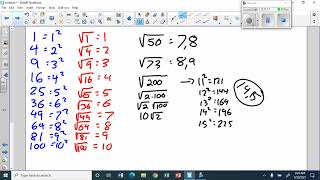 1 = 1²
4 = 2²
9 = 3²
16 = 4²
25 = 5²
36 = 6²
49 = 7²
64 = 8²
81 = 9²
100 = 10²
√1 = 1
√4 = 2
√9 = 3
√16 = 4
√25 = 5
√36 = 6
√49 = 7
√64 = 8
√81 = 9
√100 = 10
√50 = 7,8
√73 = 8,9
√200
√2·100
√2·√100
10√2
11² = 121
12² = 144
13² = 169
14² = 196
15² = 225